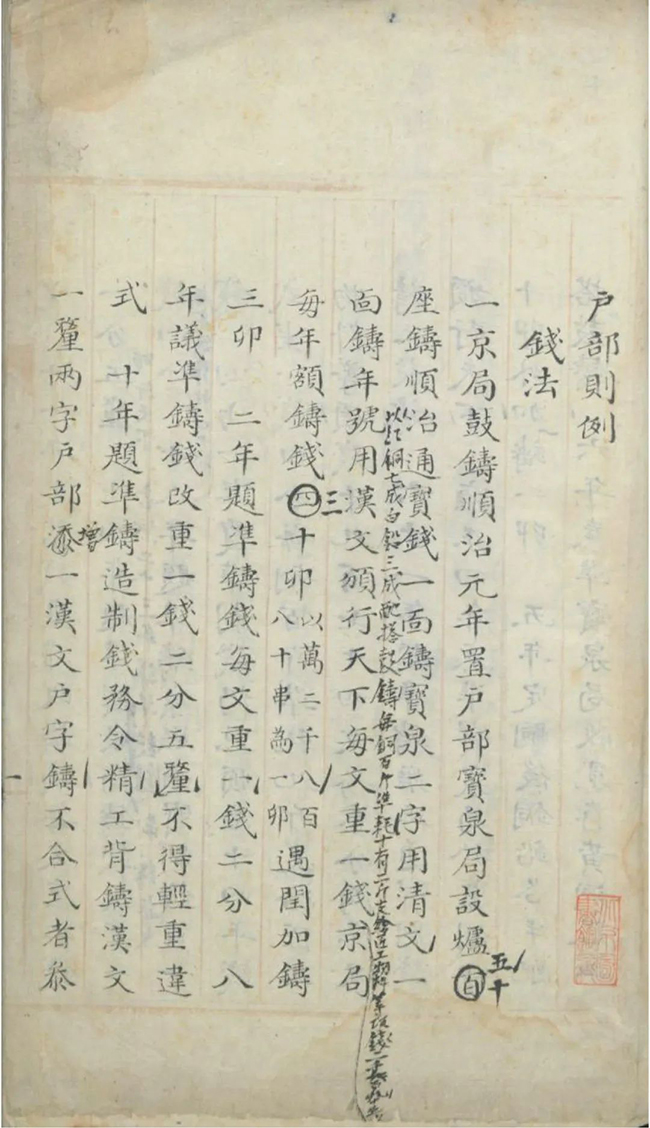 戶部則例
錢法
一京局鼓鑄順治元年置戶部寶泉局設爐百
五十
座鑄順治通寶錢一面鑄寶泉二字用清文一
面鑄年號用漢文頒行天下每文重一錢京局
以紅銅七成白鉛三成配搭鼓鑄每銅百斤準耗十有二斤
每年額鑄錢四十卯以萬二千八百八十串為一卯遇閏加鑄
三
三卯 二年題準鑄錢每文重一錢二分 八
年議準鑄錢改重一錢二分五釐不得輕重違
式 十年題準鑄造制錢務令精工背鑄漢文
一釐兩字戶部添一漢文戶字鑄不合式者叅
增
一